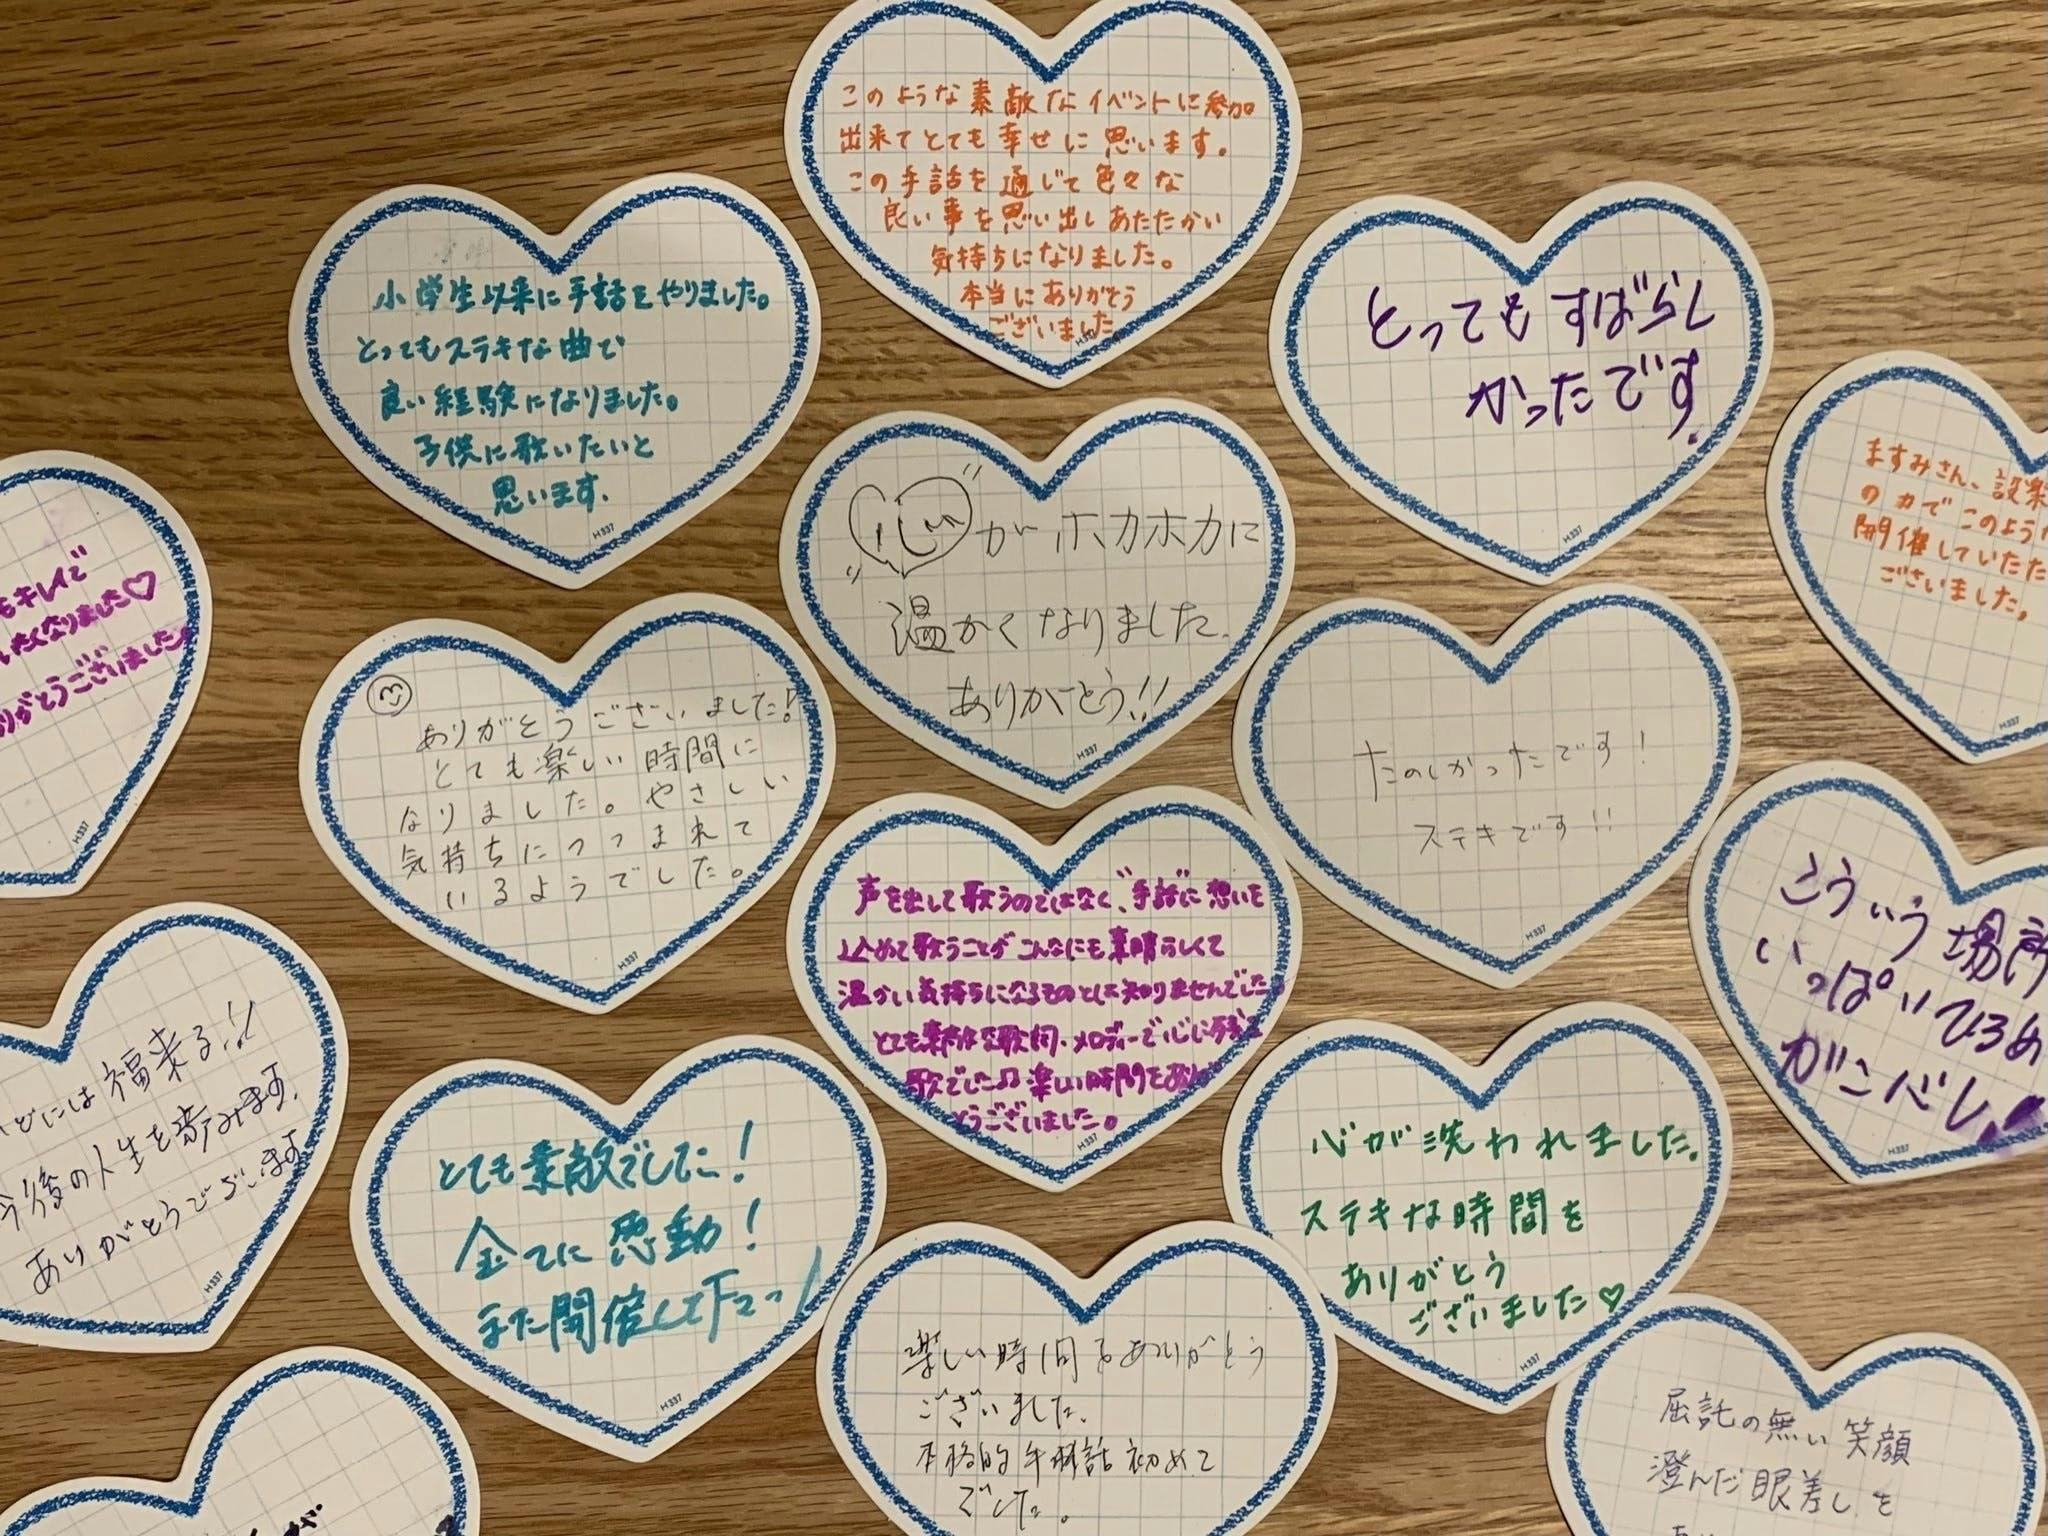 このような素敵なイベントに参加
出来てとても幸せに思います。
この手話を通じて色々な
良い事を思い出しあたたかい
気持ちになりました。
本当にありがとう
ございました
H337
小学生以来に手話をやりました。
とってもステキな曲で
良い経験になりました。
子供に歌いたいと
思います。
H337
とってもすばらし
かったです。
H337
ますみさん、設楽
の力でこのように
開催していただ
ございました。
H337
心がホカホカに
温かくなりました。
ありがとう!!
H337
もキレイで
したくなりました♡
りがとうございました。
H337
ありがとうございました!
とても楽しい時間に
なりました。やさしい
気持ちにつつまれて
いるようでした。
H337
たのしかったです!
ステキです!!
H337
声を出して歌うのではなく、"手話"に想いを
込めて歌うことがこんなにも素晴らしくて
温かい気持ちになるものとは知りませんでした。
とても素敵な歌詞・メロディーで心に残る
歌でした♫楽しい時間をあり
とうございました。
H337
こういう場所
いっぱいひろめ
がこべし
H337
どには福来る!!
今後の人生を歩みます。
ありがとうでざいます
H337
とても素敵でした!
全てに感動!
また開催して下さっ
H337
心が洗われました。
ステキな時間を
ありがとう
ございました♡
H337
楽しい時間をありがとう
ございました。
本格的手話 初めて
でした。
屈託の無い笑顔
澄んだ眼差しを
が